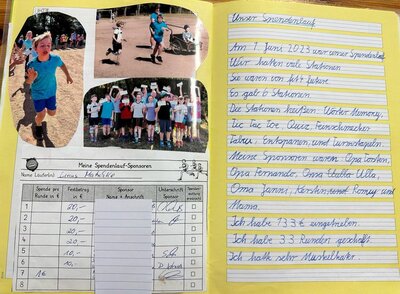 Unser Spendenlauf
Am 7. Juni 2023 war unser Spendenlauf
Wir hatten viele Stationen
Sie waren von fit 4 future
Es gab 6 Stationen.
Die Stationen heißen: Wörter Memory,
Tic Tac Toe, Quiz, Feinschmecker
Tabu, Entspannen, und
Meine Sponsoren waren Opa Torsten,
Opa Fernando, Oma
Oma Janni, Kerstin, und und
Mama.
Ich habe 133 € eingetrieben.
Ich habe 33 Runden geschafft.
Ich hatte sehr Muskelkater.
Meine Spendenlauf-Sponsoren
Name Läufer(in): Linus
Spende pro Runde in € Festbetrag in € Sponsor Name + Anschrift Unterschrift Sponsor
1 20,-
2 20,-
3 20,-
4 20,-
5 10,-
6 10,-
7 1€
8